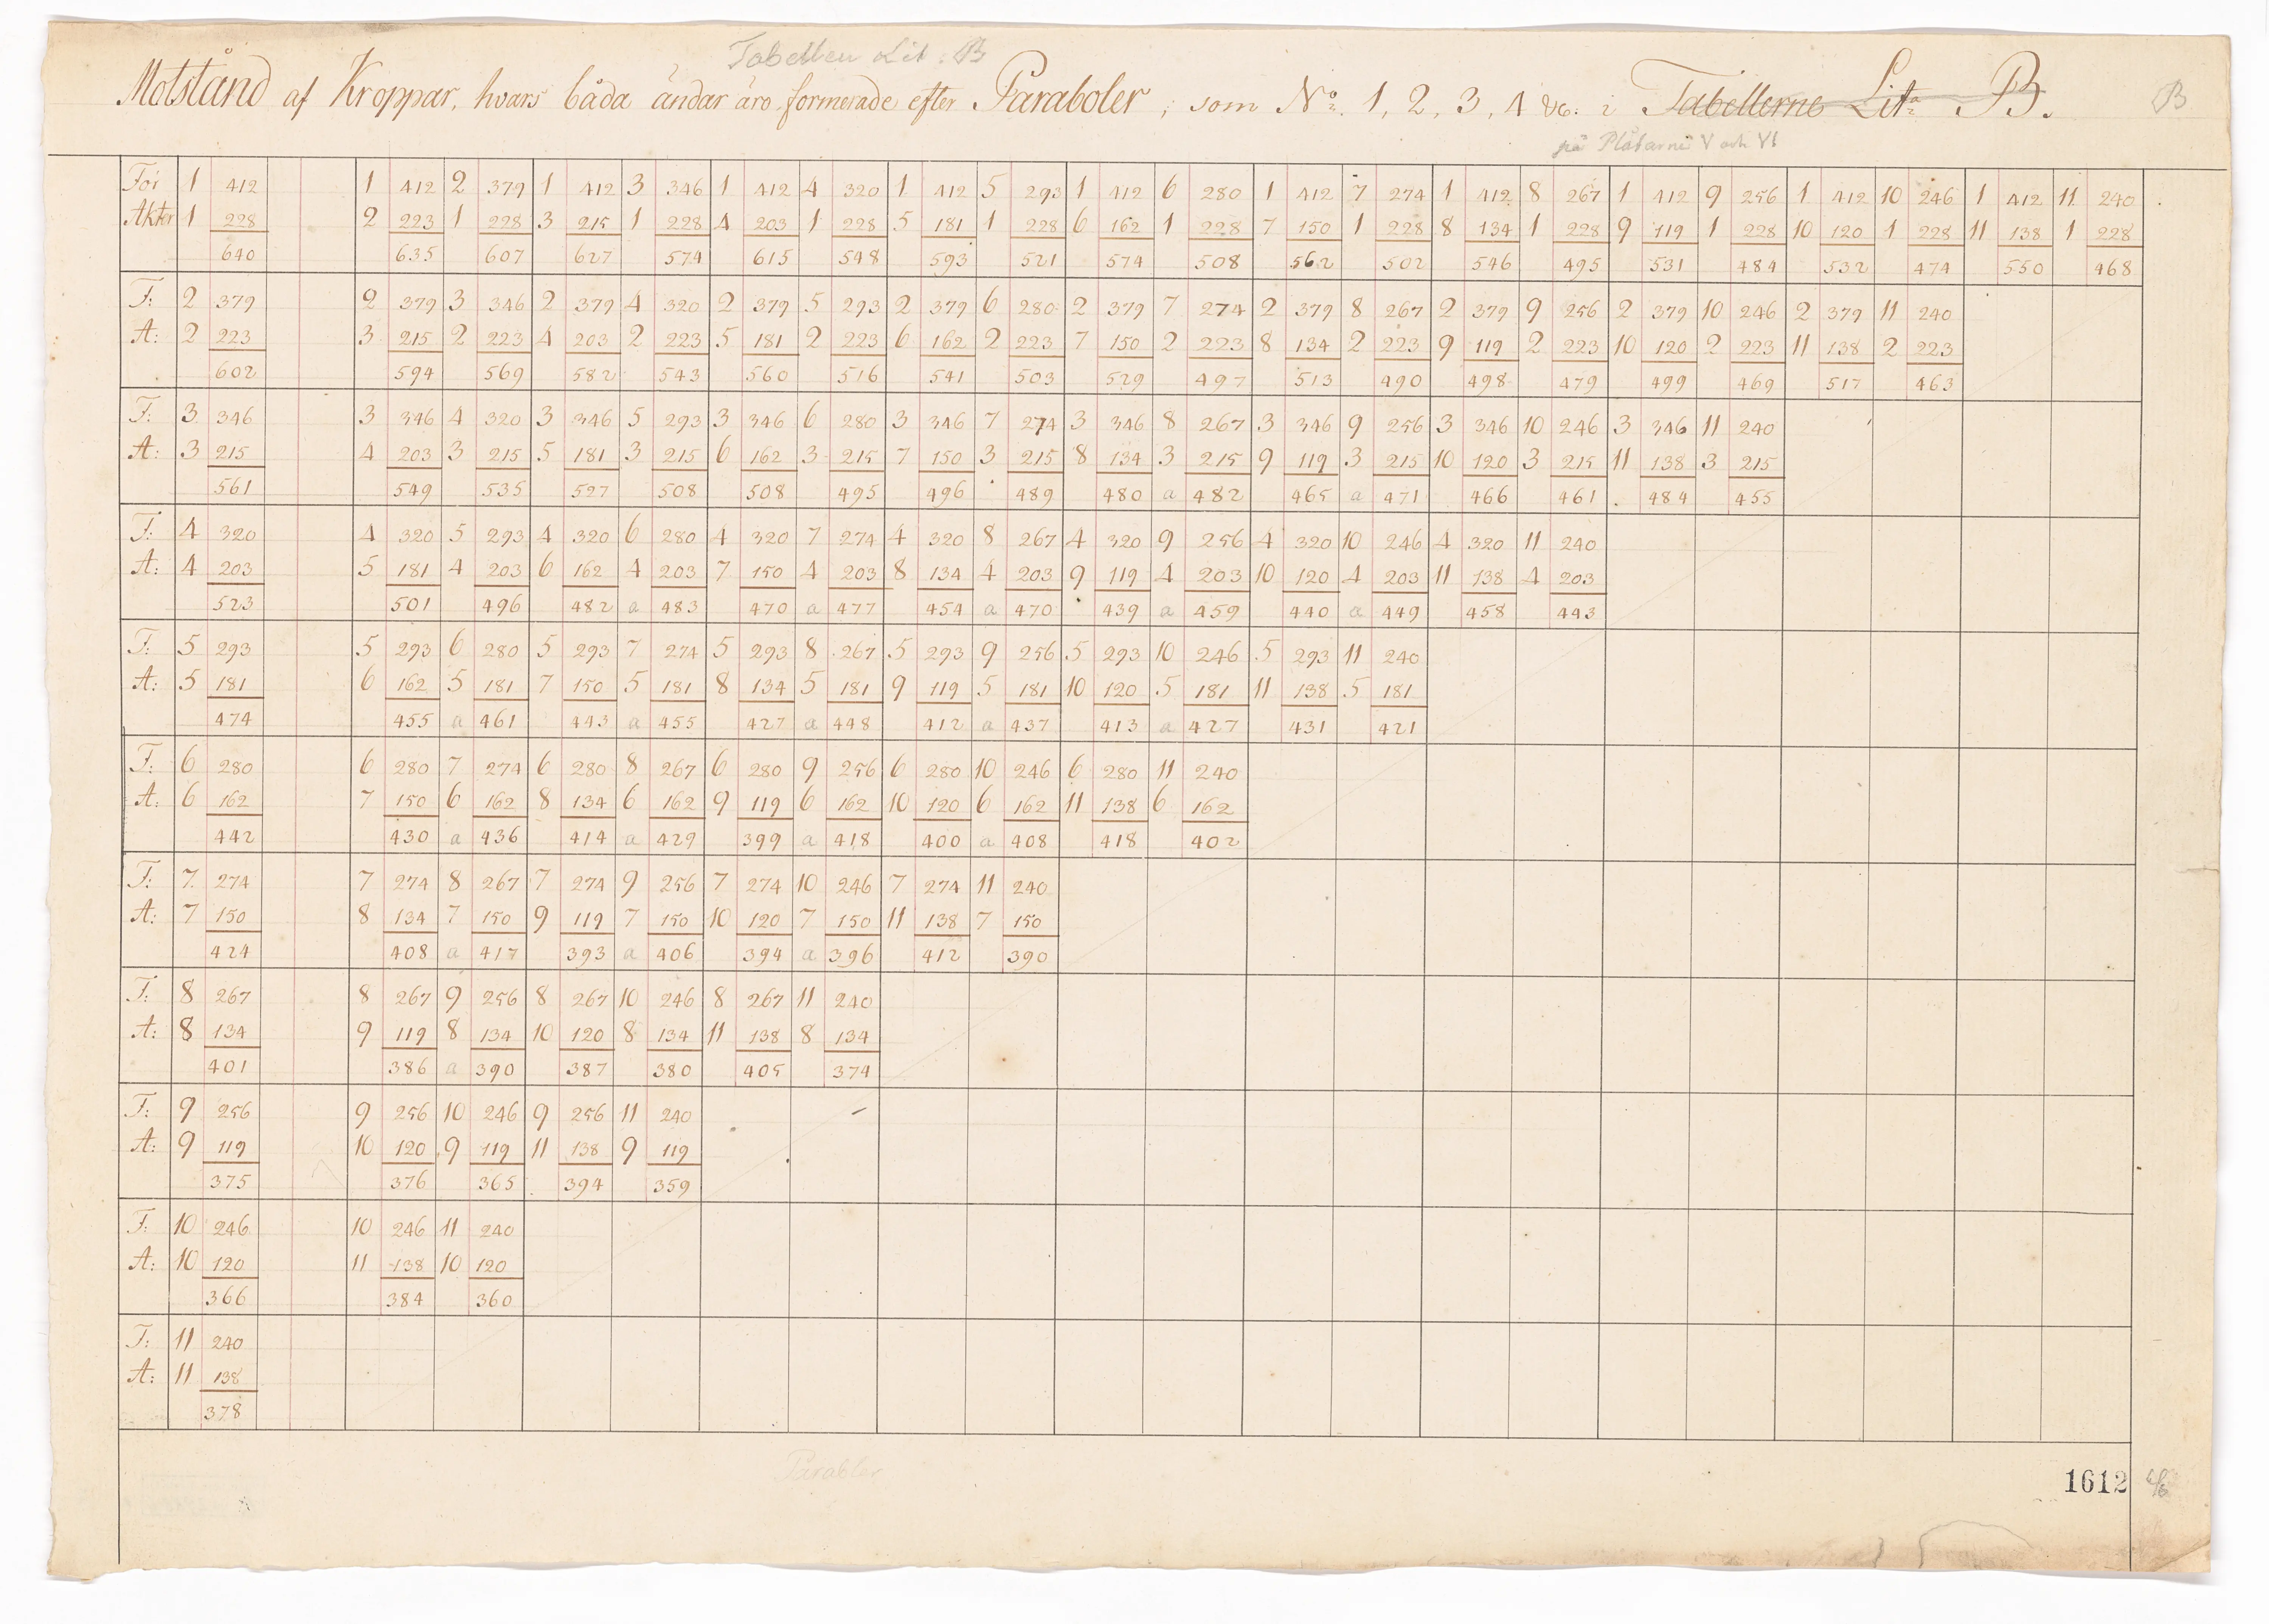 Tabellen Lit: B
Motstånd af Kroppar, hvars båda ändar äro formerade efter Paraboler, som No. 1, 2, 3, 4 &c. i Tabellerne Lit. B.
B
på Plåtarne V och VI
För 1 412 1 412 2 379 1 412 3 346 1 412 4 320 1 412 5 293 1 412 6 280 1 412 7 274 1 412 8 267 1 412 9 256 1 412 10 246 1 412 11 240
Akter 1 228 2 223 1 228 3 215 1 228 4 203 1 228 5 181 1 228 6 162 1 228 7 150 1 228 8 134 1 228 9 119 1 228 10 120 1 228 11 138 1 228
640 635 607 627 574 615 548 593 521 574 508 562 502 546 495 531 484 532 474 550 468
F: 2 379 2 379 3 346 2 379 4 320 2 379 5 293 2 379 6 280 2 379 7 274 2 379 8 267 2 379 9 256 2 379 10 246 2 379 11 240
A: 2 223 3 215 2 223 4 203 2 223 5 181 2 223 6 162 2 223 7 150 2 223 8 134 2 223 9 119 2 223 10 120 2 223 11 138 2 223
602 594 569 582 543 560 516 541 503 529 497 513 490 498 479 499 469 517 463
F: 3 346 3 346 4 320 3 346 5 293 3 346 6 280 3 346 7 274 3 346 8 267 3 346 9 256 3 346 10 246 3 346 11 240
A: 3 215 4 203 3 215 5 181 3 215 6 162 3 215 7 150 3 215 8 134 3 215 9 119 3 215 10 120 3 215 11 138 3 215
561 549 535 527 508 508 495 496 489 480 a 482 465 a 471 466 461 484 455
F: 4 320 4 320 5 293 4 320 6 280 4 320 7 274 4 320 8 267 4 320 9 256 4 320 10 246 4 320 11 240
A: 4 203 5 181 4 203 6 162 4 203 7 150 4 203 8 134 4 203 9 119 4 203 10 120 4 203 11 138 4 203
523 501 496 482 a 483 470 a 477 454 a 470 439 a 459 440 a 449 458 443
F: 5 293 5 293 6 280 5 293 7 274 5 293 8 267 5 293 9 256 5 293 10 246 5 293 11 240
A: 5 181 6 162 5 181 7 150 5 181 8 134 5 181 9 119 5 181 10 120 5 181 11 138 5 181
474 455 a 461 443 a 455 427 a 448 412 a 437 413 a 427 431 421
F: 6 280 6 280 7 274 6 280 8 267 6 280 9 256 6 280 10 246 6 280 11 240
A: 6 162 7 150 6 162 8 134 6 162 9 119 6 162 10 120 6 162 11 138 6 162
442 430 a 436 414 a 429 399 a 418 400 a 408 418 402
F: 7 274 7 274 8 267 7 274 9 256 7 274 10 246 7 274 11 240
A: 7 150 8 134 7 150 9 119 7 150 10 120 7 150 11 138 7 150
424 408 a 417 393 a 406 394 a 396 412 390
F: 8 267 8 267 9 256 8 267 10 246 8 267 11 240
A: 8 134 9 119 8 134 10 120 8 134 11 138 8 134
401 386 a 390 387 380 405 374
F: 9 256 9 256 10 246 9 256 11 240
A: 9 119 10 120 9 119 11 138 9 119
375 376 365 394 359
F: 10 246 10 246 11 240
A: 10 120 11 138 10 120
366 384 360
F: 11 240
A: 11 138
378
Parabler
1612